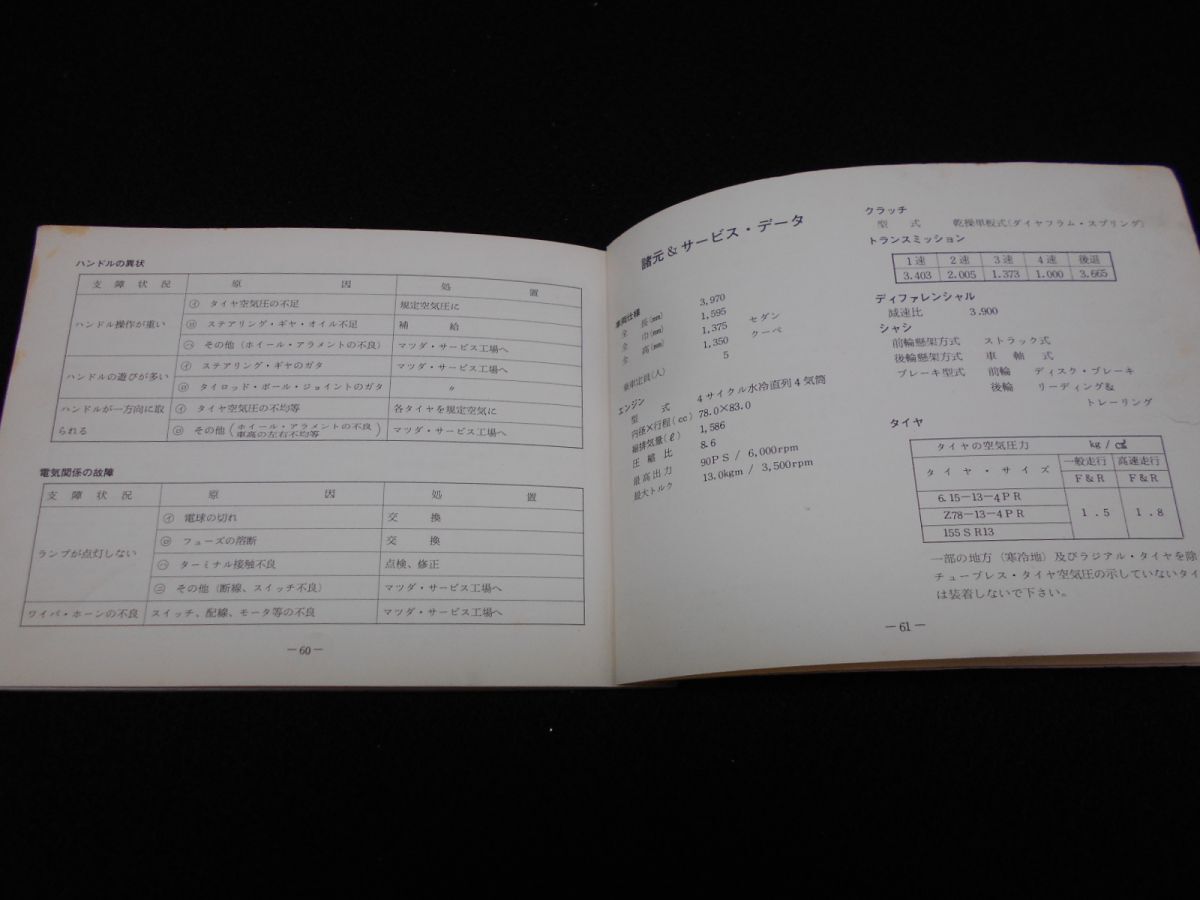 ハンドルの異状
支障状況 原因 処置
ハンドル操作が重い ㋑ タイヤ空気圧の不足 規定空気圧に
㋺ ステアリング・ギヤ・オイル不足 補給
㋩ その他(ホイール・アラメントの不良) マツダ・サービス工場へ
ハンドルの遊びが多い ㋑ ステアリング・ギヤのガタ マツダ・サービス工場へ
㋺ タイロッド・ボール・ジョイントのガタ 〃
ハンドルが一方向に取られる ㋑ タイヤ空気圧の不均等 各タイヤを規定空気に
㋺ その他(ホイール・アラメントの不良 車高の左右不均等) マツダ・サービス工場へ
電気関係の故障
支障状況 原因 処置
ランプが点灯しない ㋑ 電球の切れ 交換
㋺ フューズの溶断 交換
㋩ ターミナル接触不良 点検、修正
㋥ その他(断線、スイッチ不良) マツダ・サービス工場へ
ワイパ・ホーンの不良 スイッチ、配線、モータ等の不良 マツダ・サービス工場へ
―60―
諸元&サービス・データ
車両仕様
全長(mm) 3,970
全巾(mm) 1,595
全高(mm) 1,375 セダン
1,350 クーペ
乗車定員(人) 5
エンジン
型式 4サイクル水冷直列4気筒
内径×行程(cc) 78.0×83.0
総排気量(ℓ) 1,586
圧縮比 8.6
最高出力 90PS / 6,000rpm
最大トルク 13.0kgm / 3,500rpm
クラッチ
型式 乾操単板式(ダイヤフラム・スプリング)
トランスミッション
1速 2速 3速 4速 後退
3.403 2.005 1.373 1.000 3.665
ディファレンシャル
減速比 3.900
シャシ
前輪懸架方式 ストラック式
後輪懸架方式 車軸式
ブレーキ型式 前輪 ディスク・ブレーキ
後輪 リーディング&
トレーリング
タイヤ
タイヤの空気圧力 kg/㎠
タイヤ・サイズ 一般走行 高速走行
F&R F&R
6.15-13-4PR 1.5 1.8
Z78-13-4PR
155SR13
一部の地方(寒冷地)及びラジアル・タイヤを除
チューブレス・タイヤ空気圧の示していないタイ
は装着しないで下さい。
―61―